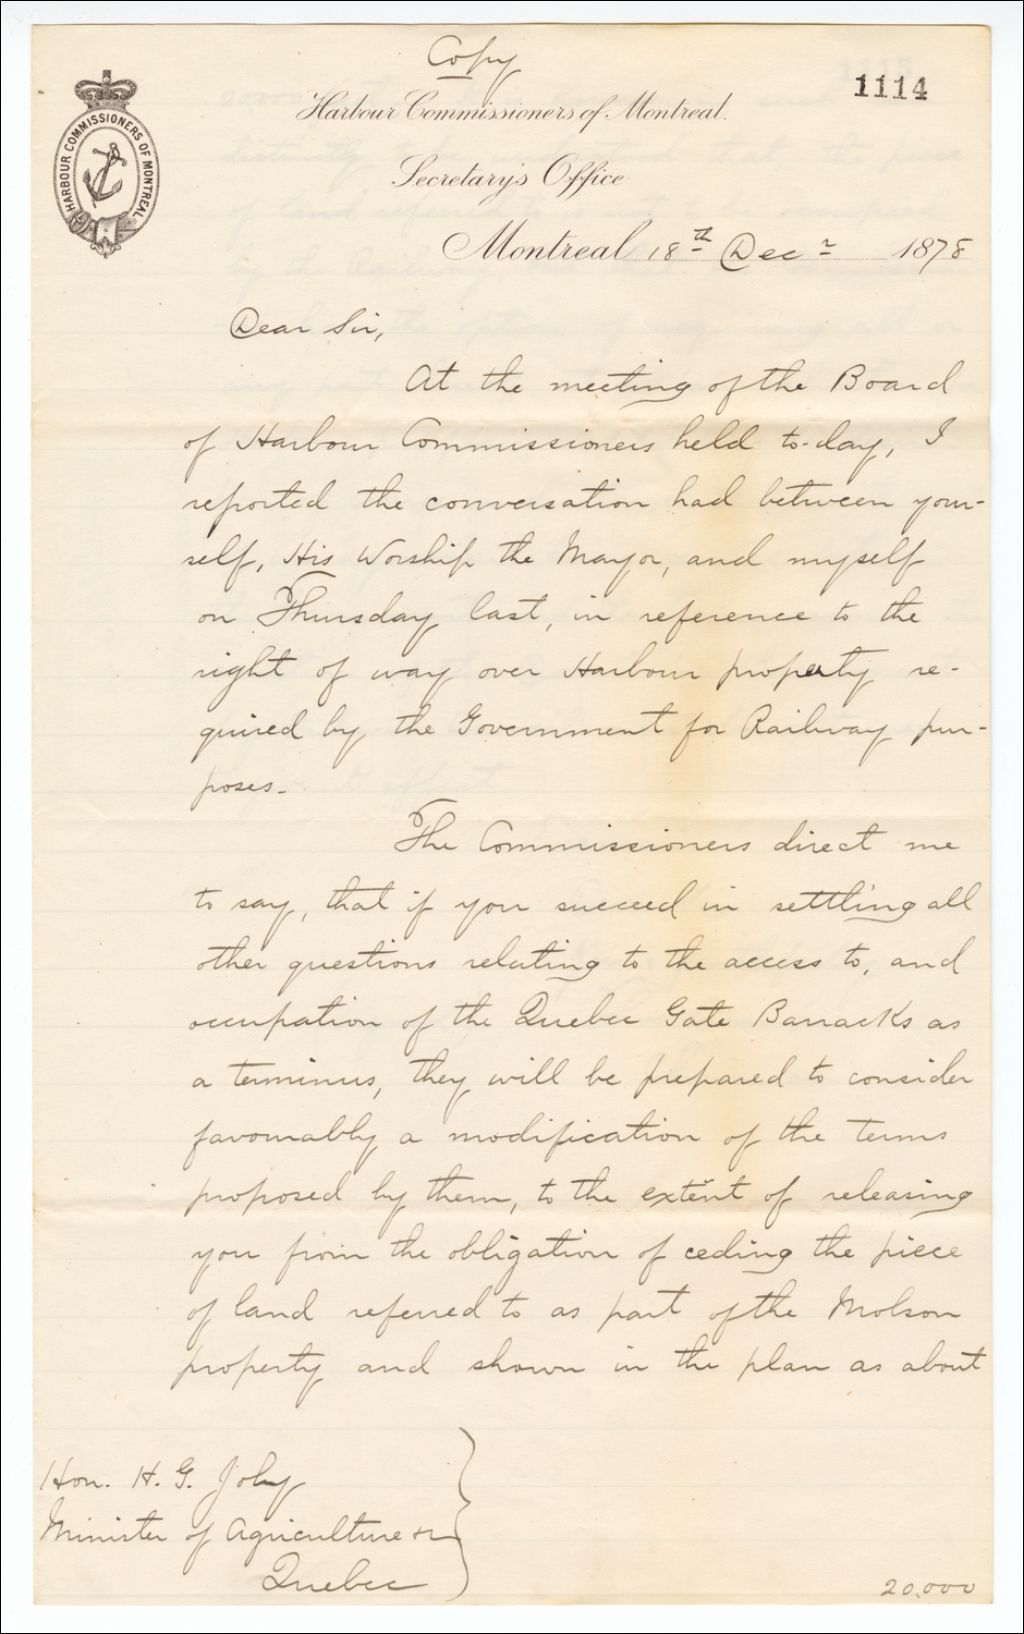 Copy
1114
Harbour Commissioners of Montreal.
HARBOUR COMMISSIONERS OF MONTREAL
Secretary's Office
Montreal 18th Decr 1878
Dear Sir,
At the meeting of the Board
of Harbour Commissioners held to-day, I
reported the conversation had between your-
self, His Worship the Mayor, and myself
on Thursday last, in reference to the
right of way over Harbour property re-
quired by the Government for Railway pur-
poses.
The Commissioners direct me
to say, that if you succeed in settling all
other questions relating to the access to, and
occupation of the Quebec Gate Barracks as
a terminus, they will be prepared to consider
favourably a modification of the terms
proposed by them, to the extent of releasing
you from the obligation of ceding the piece
of land referred to as part of the Molson
property and shown in the plan as about
Hon. H. G. Joly
Minister of Agriculture &c
Quebec
20.000